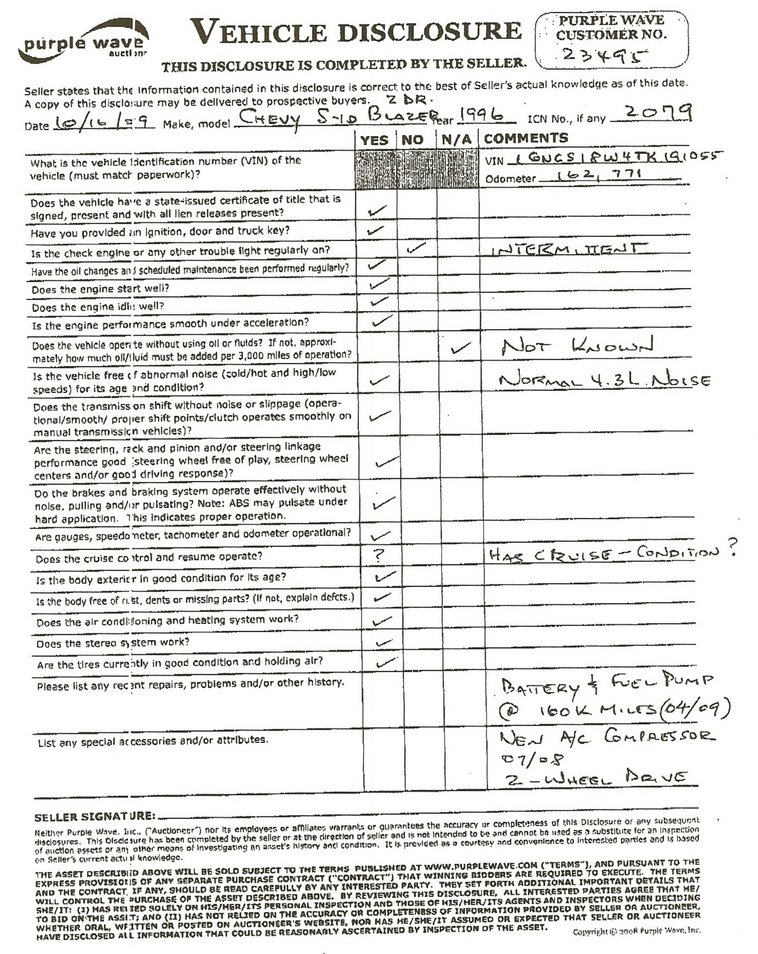 purple wave
auction
VEHICLE DISCLOSURE
THIS DISCLOSURE IS COMPLETED BY THE SELLER.
PURPLE WAVE
CUSTOMER NO.
23495
Seller states that the information contained in this disclosure is correct to the best of Seller's actual knowledge as of this date.
A copy of this disclosure may be delivered to prospective buyers. 2 DR.
Date 10/16/09 Make, model CHEVY S-10 BLAZER Year 1996 ICN No., if any 2079
YES NO N/A COMMENTS
What is the vehicle identification number (VIN) of the
vehicle (must match paperwork)?
VIN 1GNCS18W4TK191055
Odometer 162,771
Does the vehicle have a state-issued certificate of title that is
signed, present and with all lien releases present? ✓
Have you provided an ignition, door and truck key? ✓
Is the check engine or any other trouble light regularly on? ✓ INTERMITTENT
Have the oil changes and scheduled maintenance been performed regularly? ✓
Does the engine start well? ✓
Does the engine idle well? ✓
Is the engine performance smooth under acceleration? ✓
Does the vehicle operate without using oil or fluids? If not, approxi-
mately how much oil/fluid must be added per 3,000 miles of operation? ✓ NOT KNOWN
Is the vehicle free of abnormal noise (cold/hot and high/low
speeds) for its age and condition? ✓ NORMAL 4.3L NOISE
Does the transmission shift without noise or slippage (opera-
tional/smooth/ proper shift points/clutch operates smoothly on
manual transmission vehicles)? ✓
Are the steering, rack and pinion and/or steering linkage
performance good (steering wheel free of play, steering wheel
centers and/or good driving response)? ✓
Do the brakes and braking system operate effectively without
noise, pulling and/or pulsating? Note: ABS may pulsate under
hard application. This indicates proper operation. ✓
Are gauges, speedometer, tachometer and odometer operational? ✓
Does the cruise control and resume operate? ? HAS CRUISE - CONDITION?
Is the body exterior in good condition for its age? ✓
Is the body free of rust, dents or missing parts? (If not, explain defcts.) ✓
Does the air conditioning and heating system work? ✓
Does the stereo system work? ✓
Are the tires currently in good condition and holding air? ✓
Please list any recent repairs, problems and/or other history.
BATTERY & FUEL PUMP
@ 160K MILES (04/09)
List any special accessories and/or attributes.
NEW A/C COMPRESSOR
07/08
2-WHEEL DRIVE
SELLER SIGNATURE:
Neither Purple Wave, Inc., ("Auctioneer") nor its employees or affiliates warrants or guarantees the accuracy or completeness of this Disclosure or any subsequent
disclosures. This Disclosure has been completed by the seller or at the direction of seller and is not intended to be and cannot be used as a substitute for an inspection
of auction assets or any other means of investigating an asset's history and condition. It is provided as a courtesy and convenience to interested parties and is based
on Seller's current actual knowledge.
THE ASSET DESCRIBED ABOVE WILL BE SOLD SUBJECT TO THE TERMS PUBLISHED AT WWW.PURPLEWAVE.COM ("TERMS"), AND PURSUANT TO THE
EXPRESS PROVISIONS OF ANY SEPARATE PURCHASE CONTRACT ("CONTRACT") THAT WINNING BIDDERS ARE REQUIRED TO EXECUTE. THE TERMS
AND THE CONTRACT, IF ANY, SHOULD BE READ CAREFULLY BY ANY INTERESTED PARTY. THEY SET FORTH ADDITIONAL IMPORTANT DETAILS THAT
WILL CONTROL THE PURCHASE OF THE ASSET DESCRIBED ABOVE. BY REVIEWING THIS DISCLOSURE, ALL INTERESTED PARTIES AGREE THAT HE/
SHE/IT: (I) HAS RELIED SOLELY ON HIS/HER/ITS PERSONAL INSPECTION AND THOSE OF HIS/HER/ITS AGENTS AND INSPECTORS WHEN DECIDING
TO BID ON THE ASSET; AND (II) HAS NOT RELIED ON THE ACCURACY OR COMPLETENESS OF INFORMATION PROVIDED BY SELLER OR AUCTIONEER,
WHETHER ORAL, WRITTEN OR POSTED ON AUCTIONEER'S WEBSITE, NOR HAS HE/SHE/IT ASSUMED OR EXPECTED THAT SELLER OR AUCTIONEER
HAVE DISCLOSED ALL INFORMATION THAT COULD BE REASONABLY ASCERTAINED BY INSPECTION OF THE ASSET. Copyright © 2008 Purple Wave, Inc.